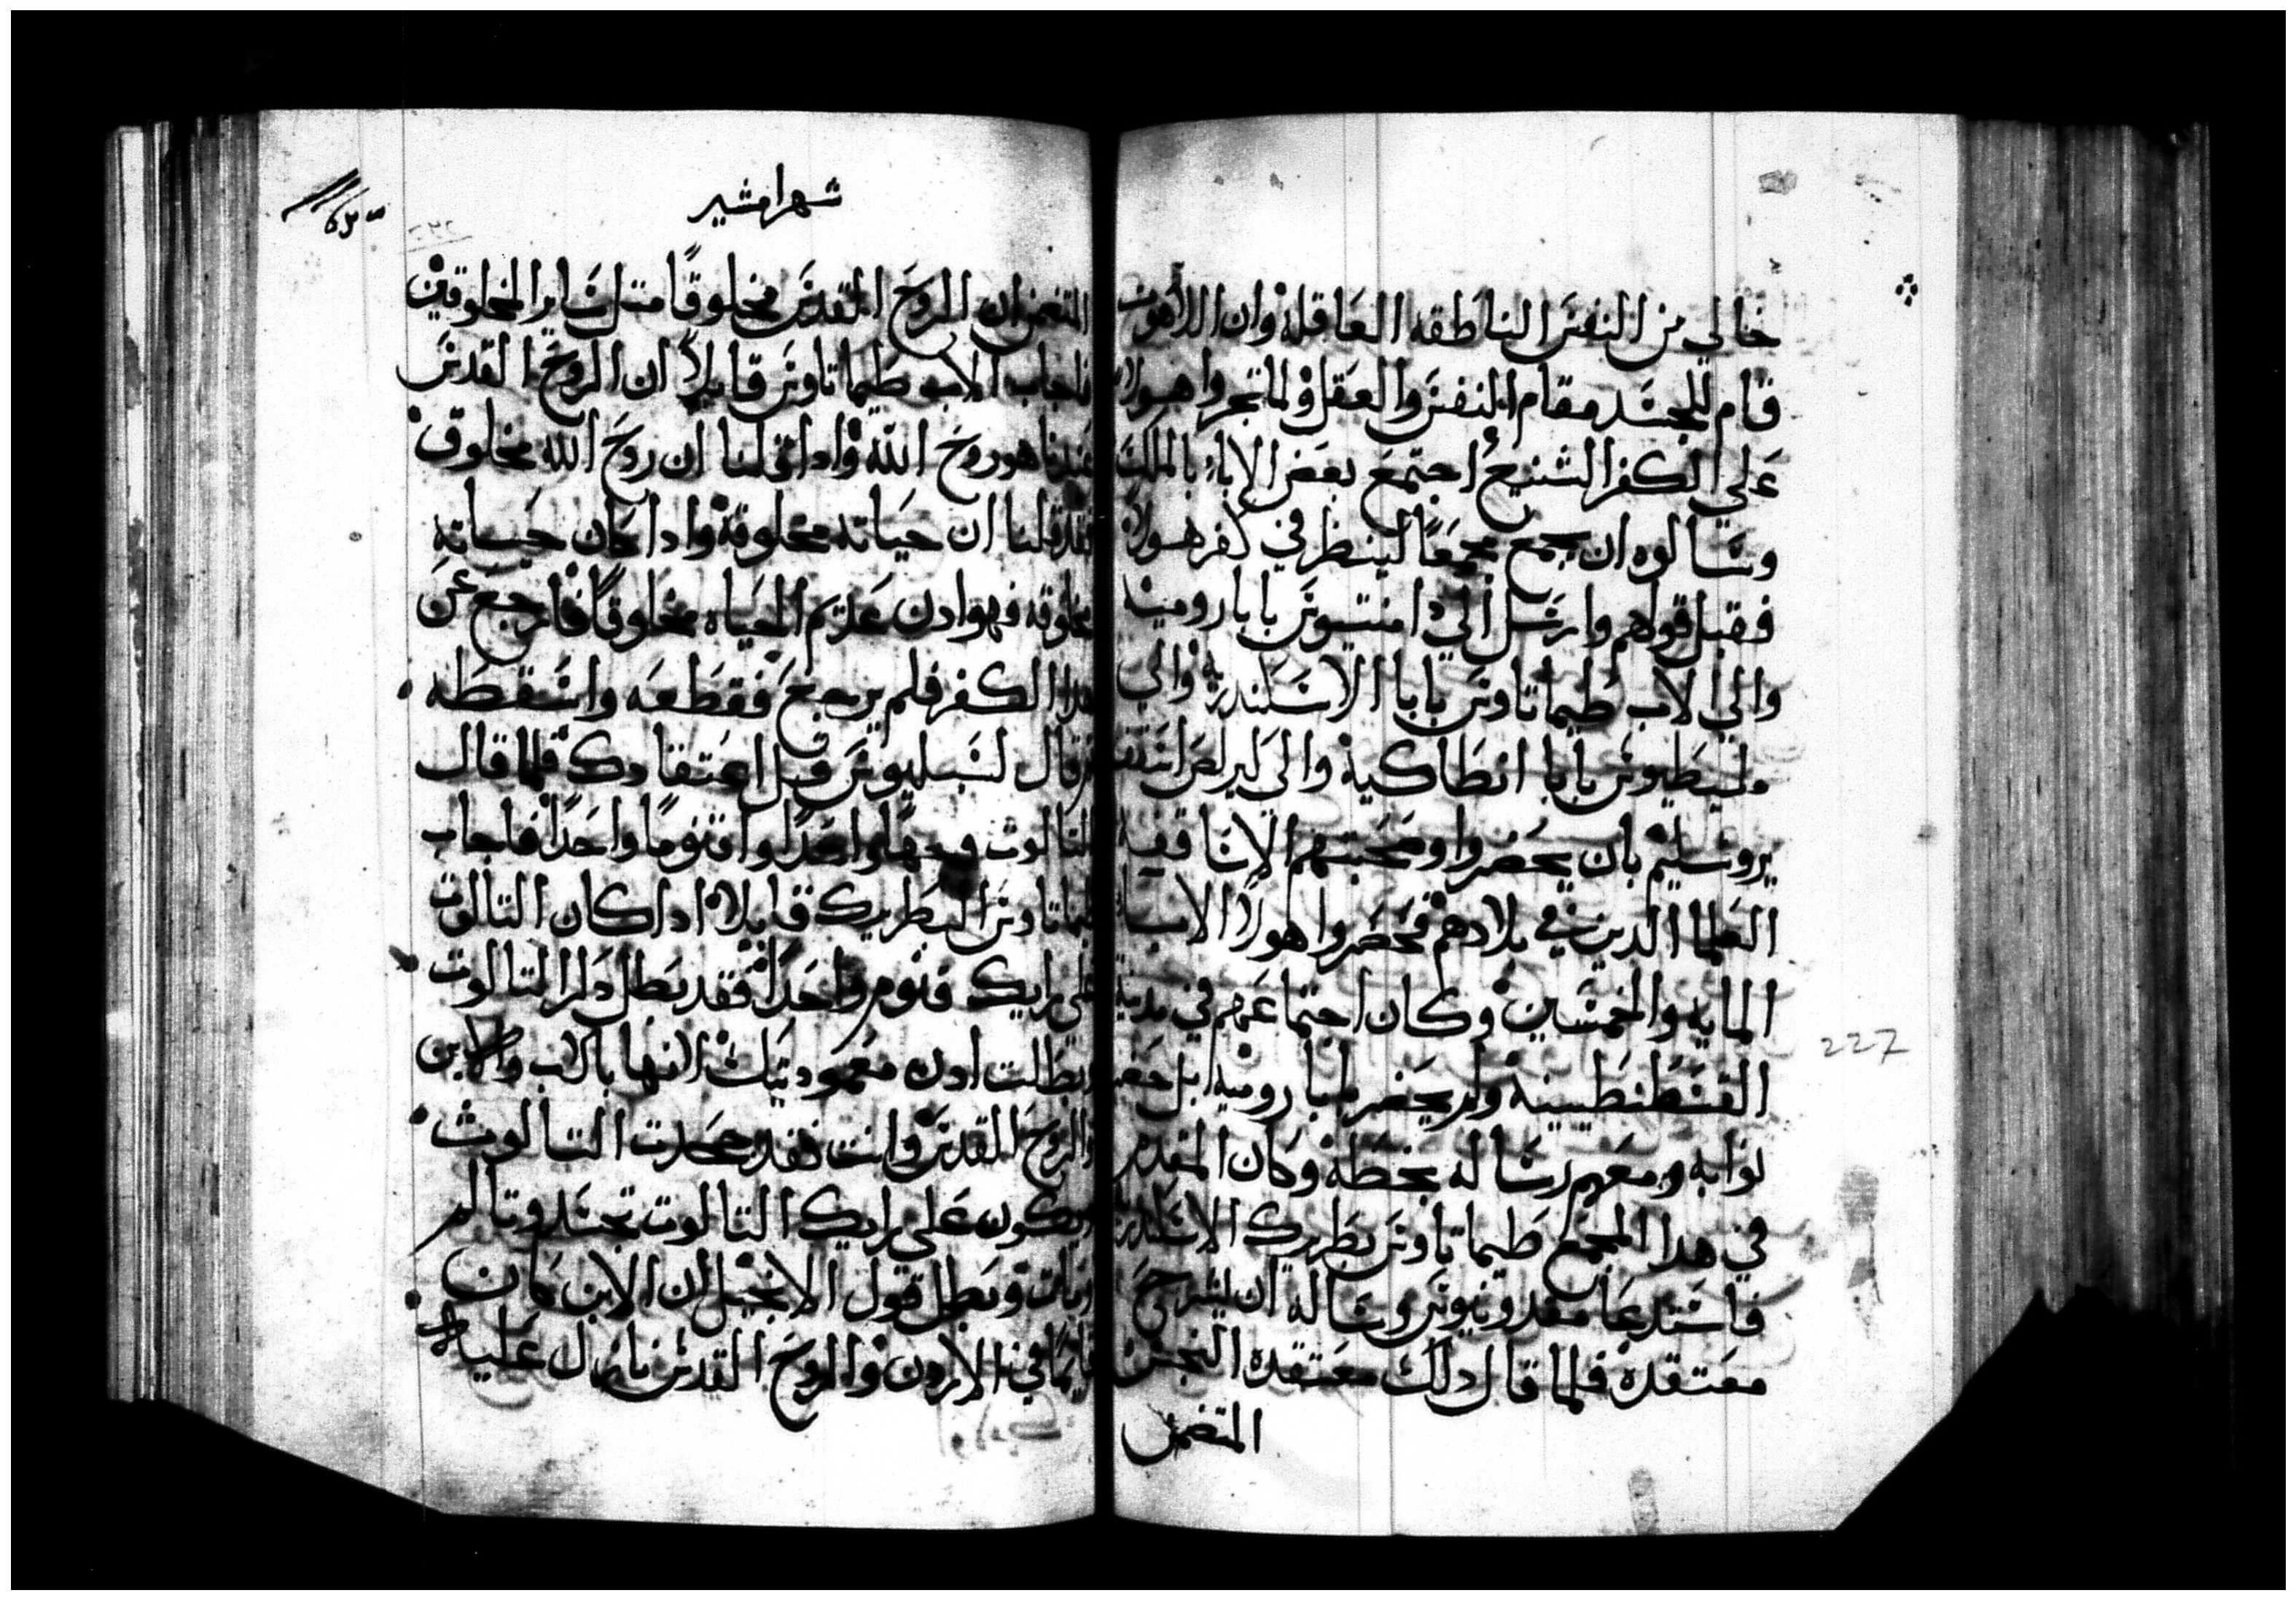 خالي من النفس الناطقه العاقله وان اللاهوت
قام للجسد مقام النفس والعقل ولما تجروا هولاء
علي الكفر الشنيع اجتمع بعض الاباء بالملك
وسالوه ان يجمع مجمعًا لينظر في كفر هولاء
فقبل قولهم وارسل الي دامنتسيوس بابا روميه
والي الاب طيماتاوس بابا الاسكندريه والي
مليطيوس بابا انطاكية والي كيرلص اسقف
يروشليم بان يحضروا وصحبتهم الاساقفه
العلما الدين في بلادهم فحضروا هولاء الابا
المايه والخمسين وكان اجتماعهم في مدينة
القسطنطينيه ولم يحضر بابا روميه بل حضر
نوابه ومعهم رساله بخطه وكان المقدم
في هدا المجمع طيماتاوس بطريرك الاسكندريه
فاستدعا مقدونيوس وساله ان يشرح
معتقده فلما قال دلك معتقده النجس
المتضمن
شهر امشير
المتضمن ان الروح القدس مخلوقًا متل ساير المخلوقين
فاجاب الاب طيماتاوس قايلاً ان الروح القدس
عندنا هو روح الله وادا قلنا ان روح الله مخلوق
فقد قلنا ان حياته مخلوقة وادا كان حياته
مخلوقه فهو ادن عديم الحياه مخلوقًا فارجع عن
هدا الكفر فلم يرجع فقطعه واسقطه
تم قال لسبليوس قبل اعتقادك فلما قال
التالوت وجهًا واحدًا واقنومًا واحدًا فاجاب
طيماتاوس البطريرك قايلاً ادا كان التالوت
علي رايك قنوم واحدًا فقد بطل دكر التالوت
وبطلت ادن معموديتك لانها بالاب والابن
والروح القدس وانت فقد جحدت التالوث
ويكون علي رايك التالوت تجسد وتالم
ومات وبطل قول الانجيل ان الابن كان
قايمًا في الاردن والروح القدس نازل عليه
227